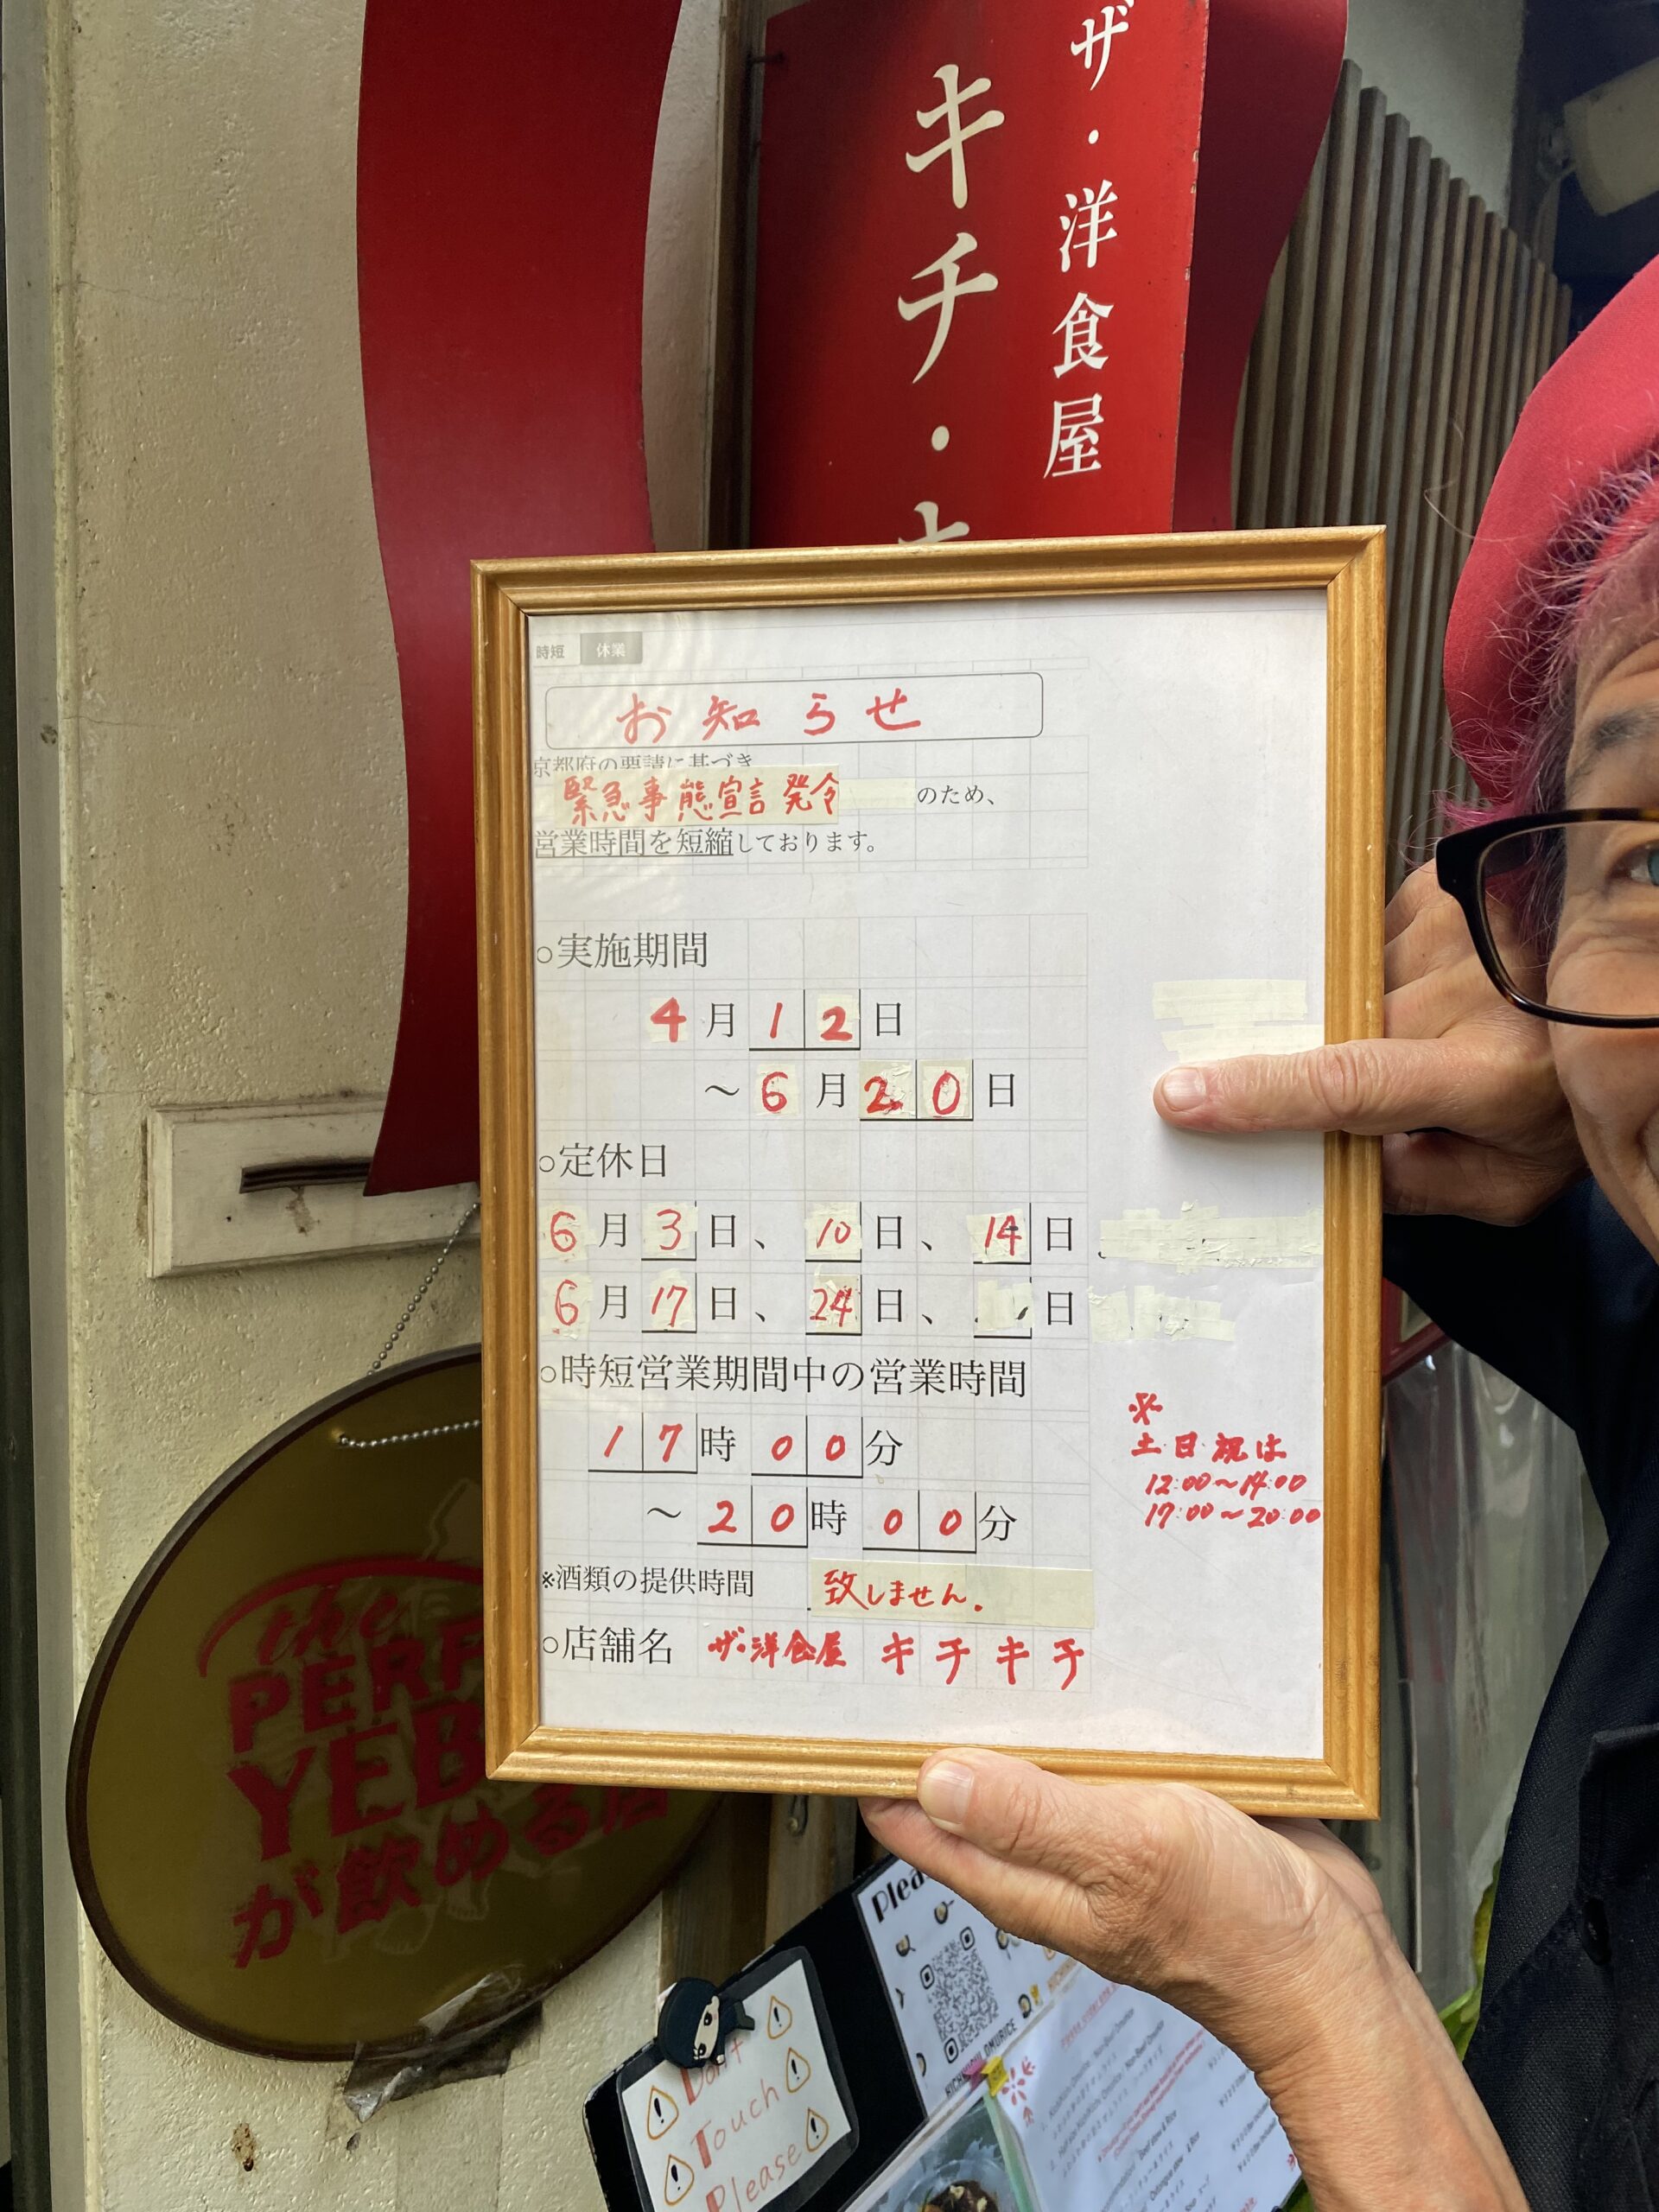 ザ・洋食屋
キチ・
時短 休業
お知らせ
京都府の要請に基づき
緊急事態宣言発令 のため、
営業時間を短縮しております。
○実施期間
4月12日
～6月20日
○定休日
6月3日、10日、14日
6月17日、24日、 日
○時短営業期間中の営業時間
17時00分
～20時00分
※
土日祝は
12:00～14:00
17:00～20:00
※酒類の提供時間 致しません.
○店舗名 ザ・洋食屋 キチキチ
the
PERF
YEB
が飲める店
Plea
OMURICE
Don't
Touch
Please